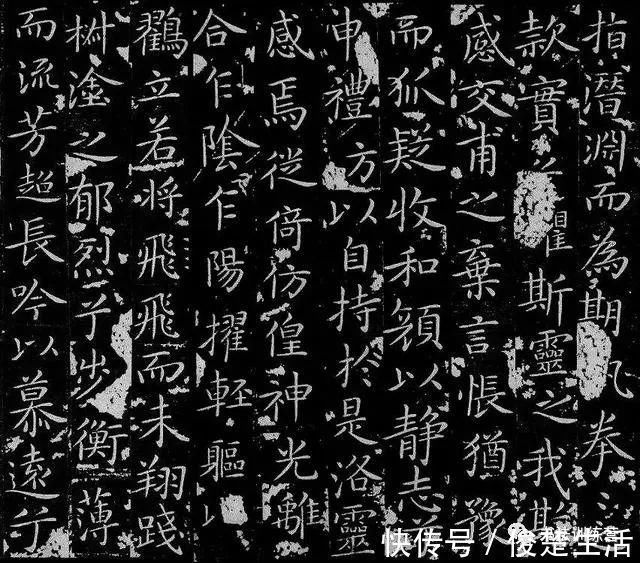 指潛淵而為期拳
款實懼斯靈之我
感交甫之棄言悵猶豫
而狐疑收和顏以靜志
申禮方以自持於是洛靈
感焉徙倚彷徨神光離
合乍陰乍陽擢輕軀以
鸛立若將飛飛而未翔踐
椒塗之郁烈乎步衡薄
而流芳超長吟以慕遠兮
快传号 / 俊是生活